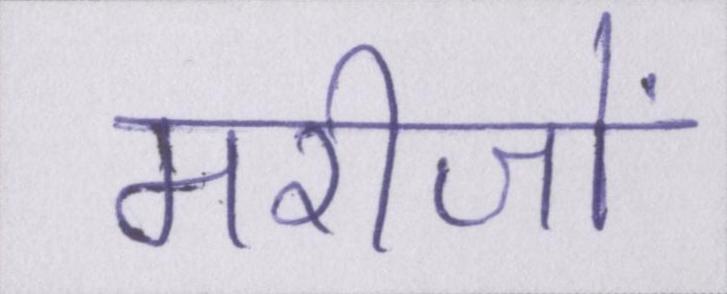 मरीजों